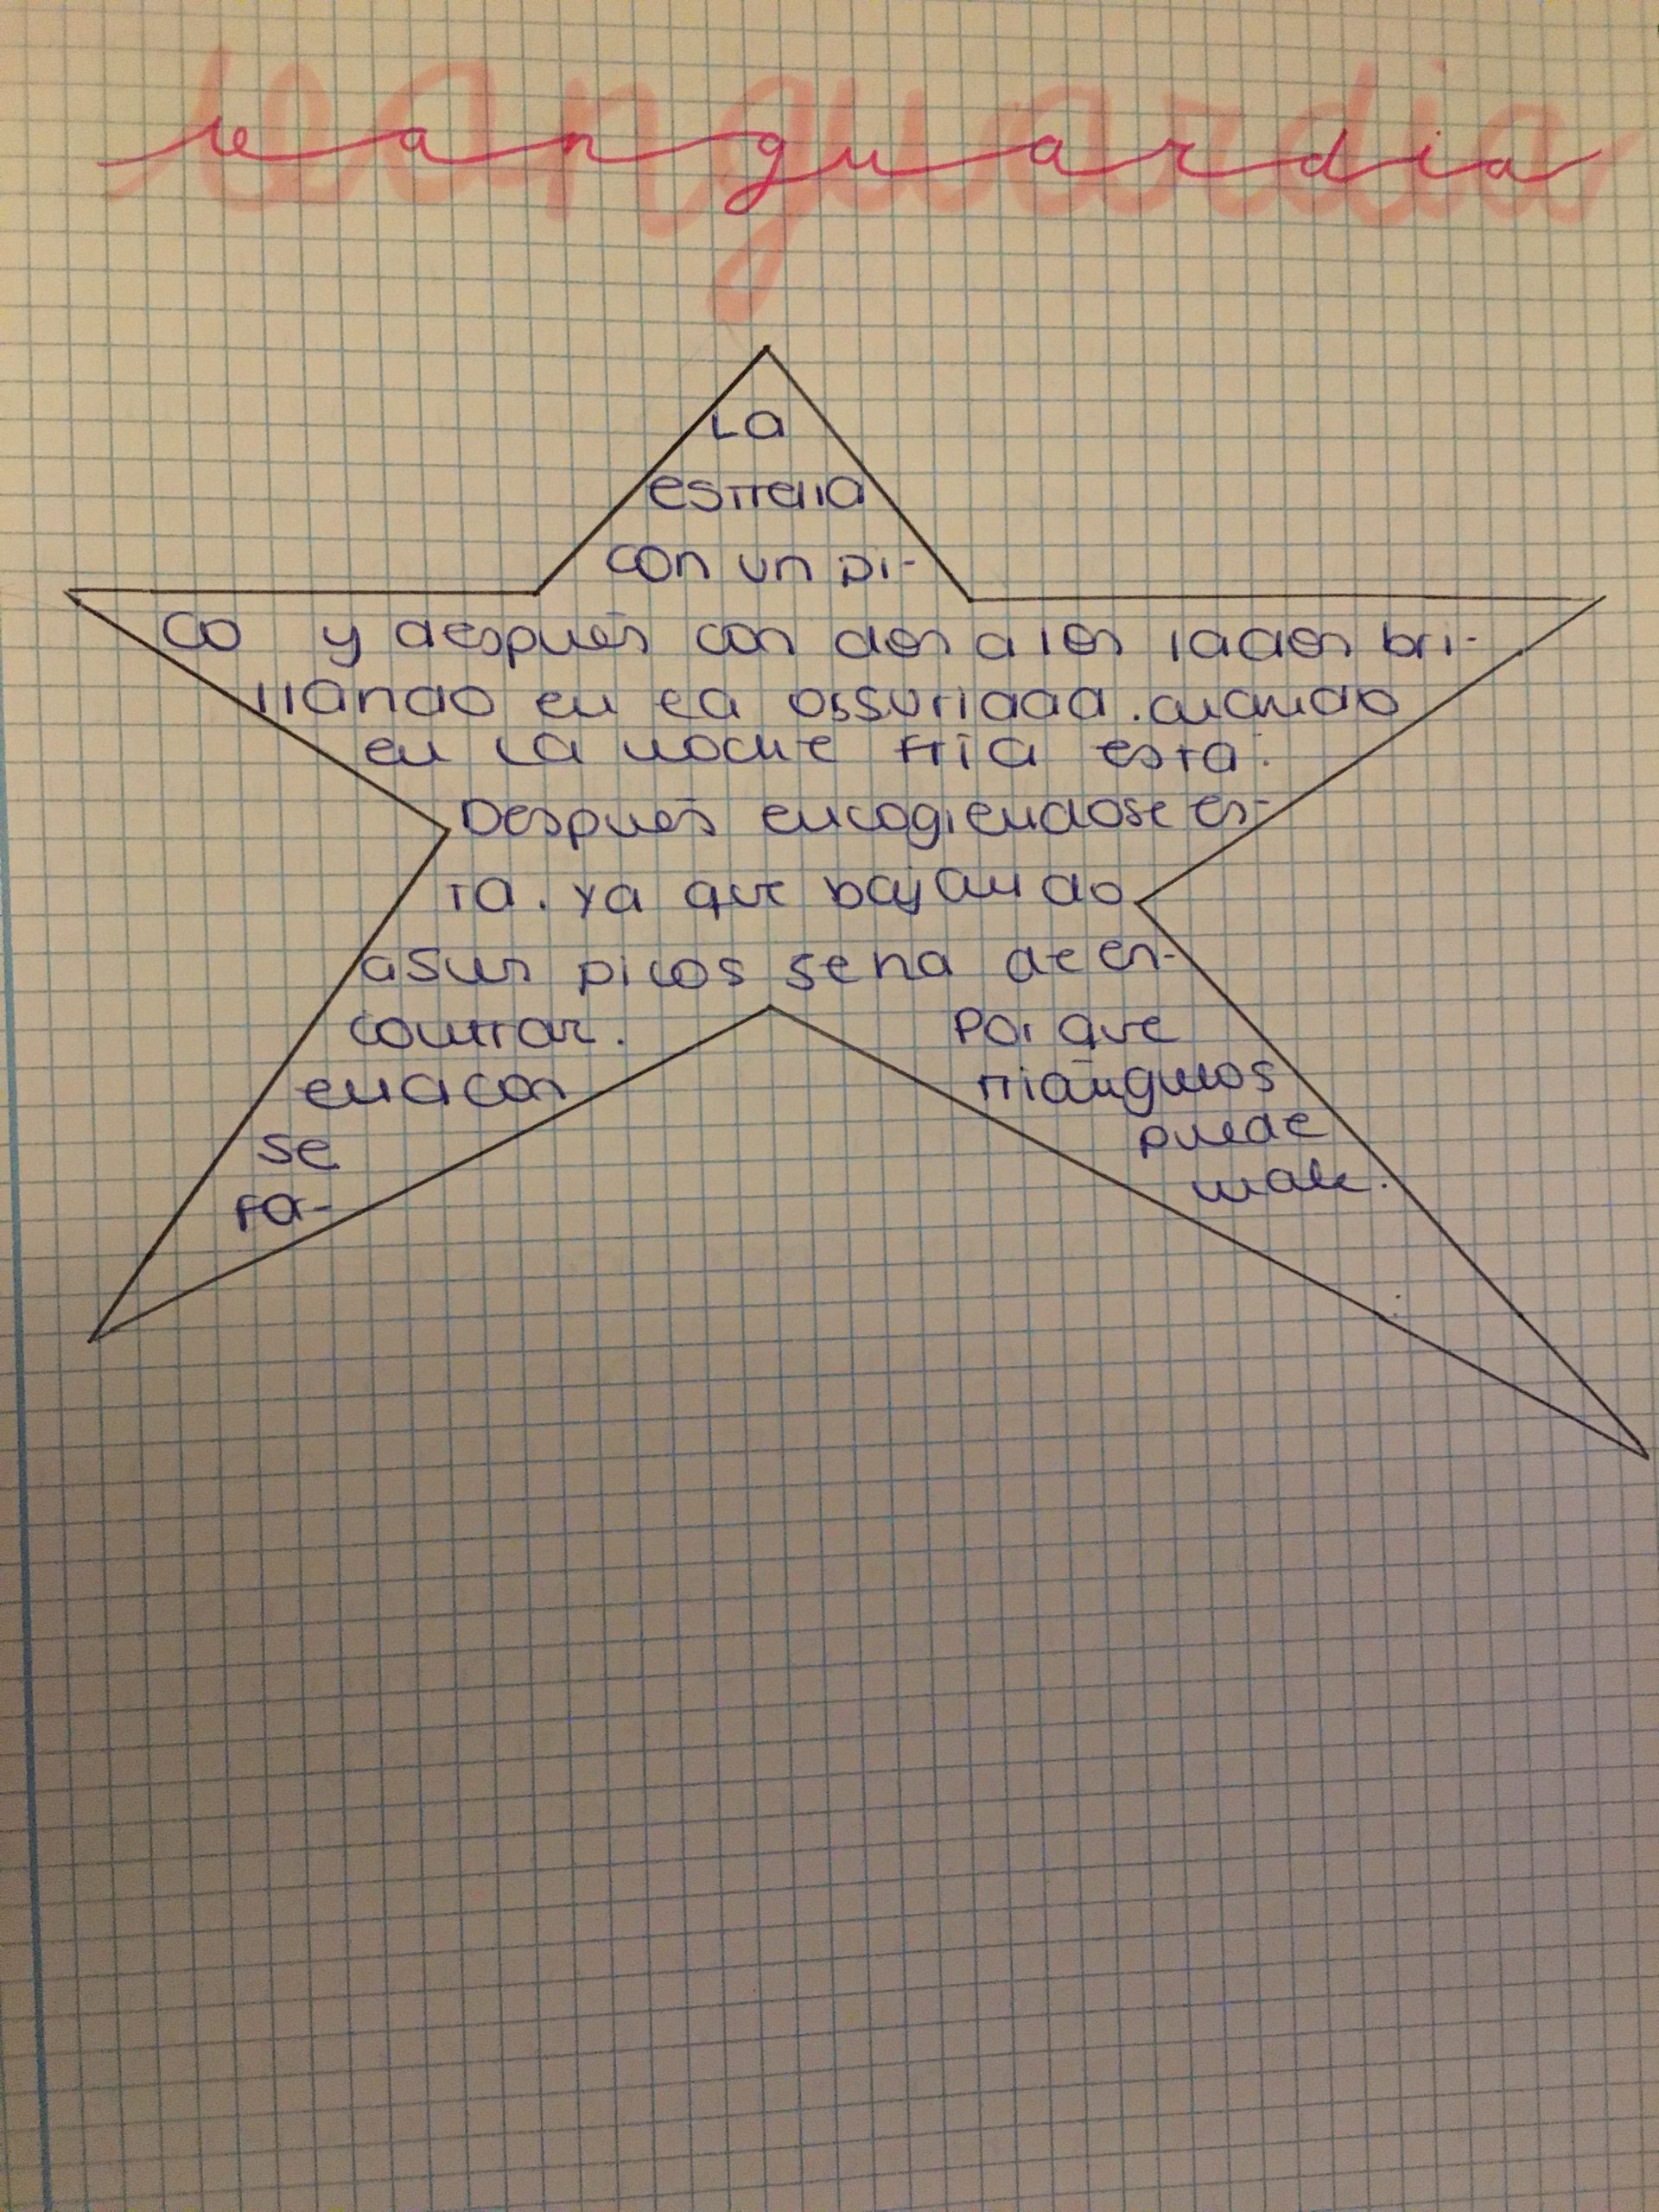 vanguardia
La
estrella
con un pi-
co y después con dos a los lados bri-
llando en la ossuridad. cuando
en la noche fría está.
Después encogiendose es-
ta. ya que bajando
a sus picos se ha de en-
contrar.
ella con
se
fa-
Por que
triángulos
puede